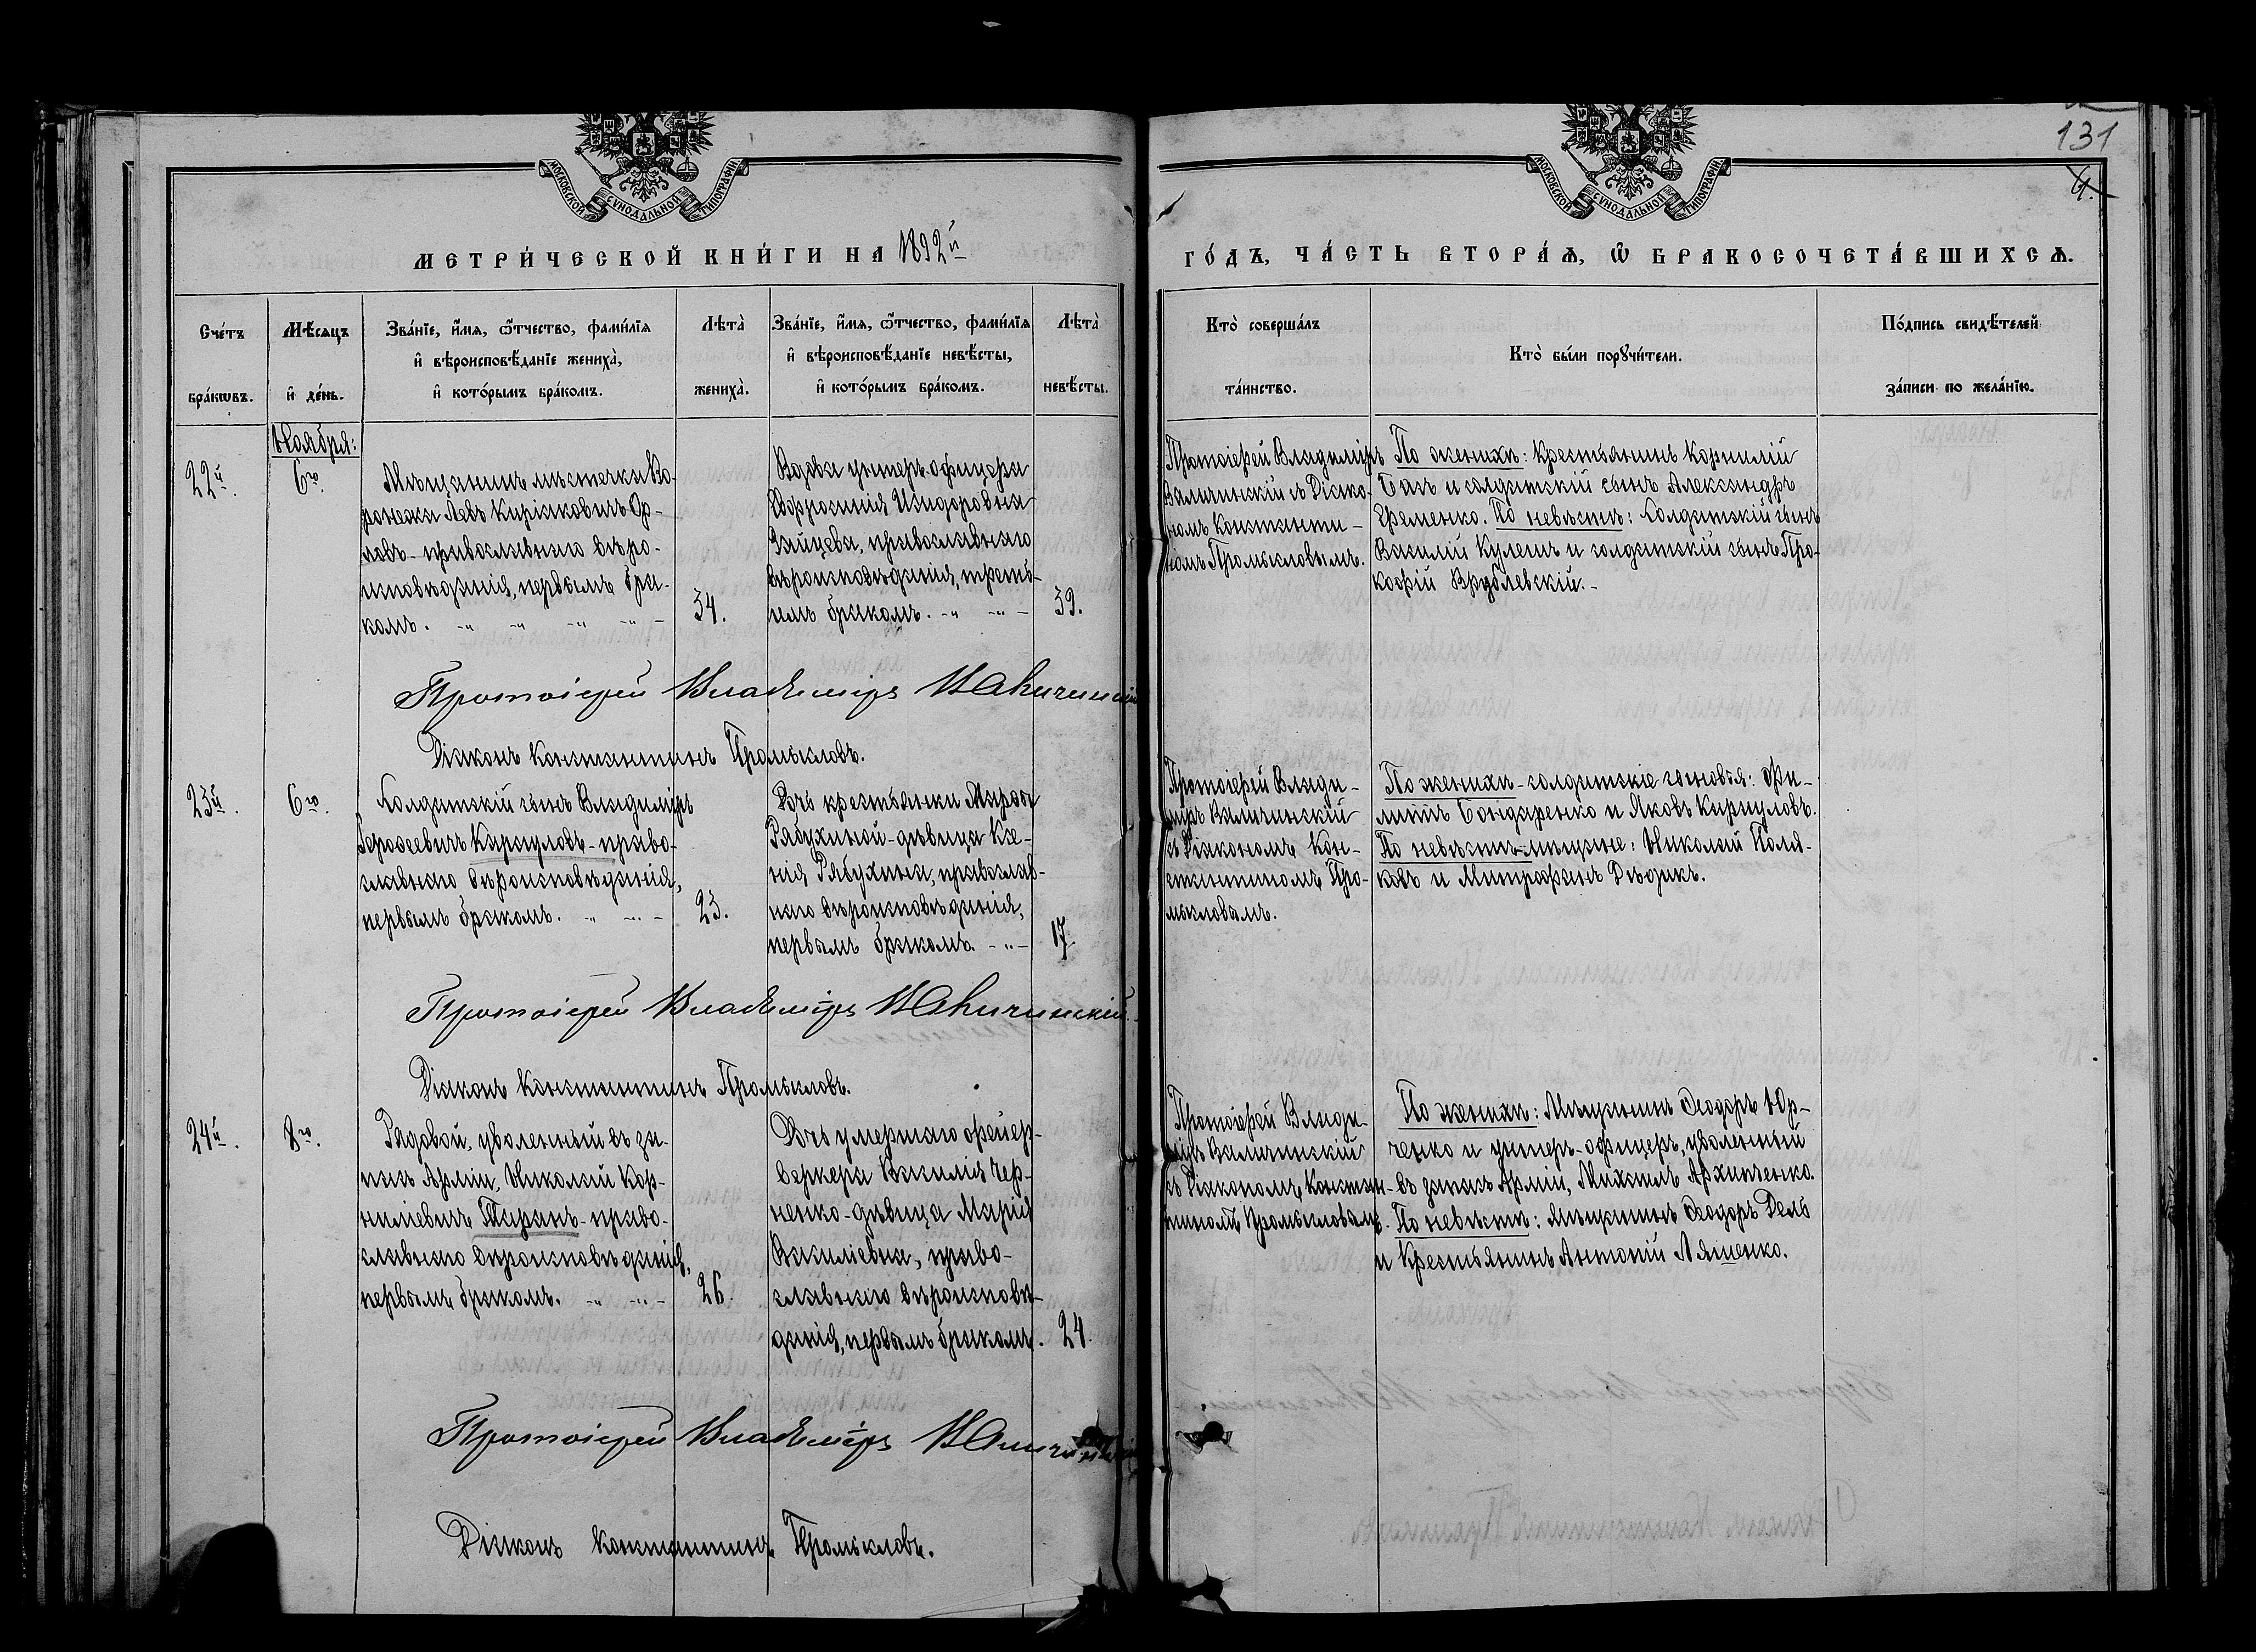 131
4.
МОСКОВСКОЙ СѴНОДАЛЬНОЙ ТИПОГРАФІИ
МОСКОВСКОЙ СѴНОДАЛЬНОЙ ТИПОГРАФІИ
МЕТРИ́ЧЕСКОЙ КНИ́ГИ НА 1892й
ГО́ДЪ, ЧА́СТЬ ВТОРА́Ѧ, Ѽ БРАКОСОЧЕТА́ВШИХСѦ.
Сче́тъ бра́кѡвъ.
Мѣ́сѧцъ и҆ де́нь.
Зва́нїе, и҆́мѧ, ѻ҆́тчество, фами́лїѧ
и҆ вѣроисповѣ́данїе жениха̀,
и҆ кото́рымъ бра́комъ.
Лѣта̀ жениха̀.
Зва́нїе, и҆́мѧ, ѻ҆́тчество, фами́лїѧ
и҆ вѣроисповѣ́данїе невѣ́сты,
и҆ кото́рымъ бра́комъ.
Лѣта̀ невѣ́сты.
Кто̀ соверша́лъ
та́инство.
Кто̀ бы́ли порꙋчи́тели.
По́дпись свидѣ́телей
за́писи по жела́нїю.
Ноября:
22й.
6го.
Мѣщанинъ мѣстечка Во-
ронежа Левъ Киріаковичъ Ор-
ловъ - православнаго вѣро-
исповѣданія, первымъ бра-
комъ.
34.
Вдова унтеръ-офицера
Евфросинія Исидоровна
Зайцева, православнаго
вѣроисповѣданія, треть-
имъ бракомъ.
39.
Протоіерей Владиміръ
Валичинскій съ Діако-
номъ Константи-
номъ Промысловымъ.
По женихѣ: крестьянинъ Корнилій
Базъ и солдатскій сынъ Александръ
Еременко. По невѣстѣ: Солдатскій сынъ
Василій Кулешъ и солдатскій сынъ Про-
кофій Врублевскій.
Протоіерей Владиміръ Валичинскій
Діаконъ Константинъ Промысловъ.
23й.
6го.
Солдатскій сынъ Владиміръ
Карауловъ - право-
славнаго вѣроисповѣданія,
первымъ бракомъ.
23.
Дочь крестьянки Марѳы
Рябухиной - дѣвица Ксе-
нія Рябухина, православ-
наго вѣроисповѣданія,
первымъ бракомъ.
17.
Протоіерей Влади-
міръ Валичинскій
съ Діакономъ Кон-
стантиномъ Про-
мысловымъ.
По женихѣ - солдатскіе сыновья: Фи-
липъ Бондаренко и Яковъ Карауловъ.
По невѣстѣ - мѣщане: Николай Поля-
ковъ и Митрофанъ Дѣдикъ.
Протоіерей Владиміръ Валичинскій
Діаконъ Константинъ Промысловъ.
24й.
8го.
Рядовой, уволенный въ за-
пасъ Арміи, Николай Кор-
ниліевичъ Таранъ - право-
славнаго вѣроисповѣданія,
первымъ бракомъ.
26.
Дочь умершаго фейер-
веркера Василія Чер-
ненко - дѣвица Марія
Василіевна, право-
славнаго вѣроисповѣ-
данія, первымъ бракомъ.
24.
Протоіерей Влади-
міръ Валичинскій
съ Діакономъ Констан-
тиномъ Промысловымъ.
По женихѣ: Мѣщанинъ Ѳеодоръ Юр-
ченко и унтеръ-офицеръ, уволенный
въ запасъ Арміи, Михаилъ Архипченко.
По невѣстѣ: Мѣщанинъ Ѳеодоръ Дель
и крестьянинъ Антоній Ляшенко.
Протоіерей Владиміръ Валичинскій
Діаконъ Константинъ Промысловъ.